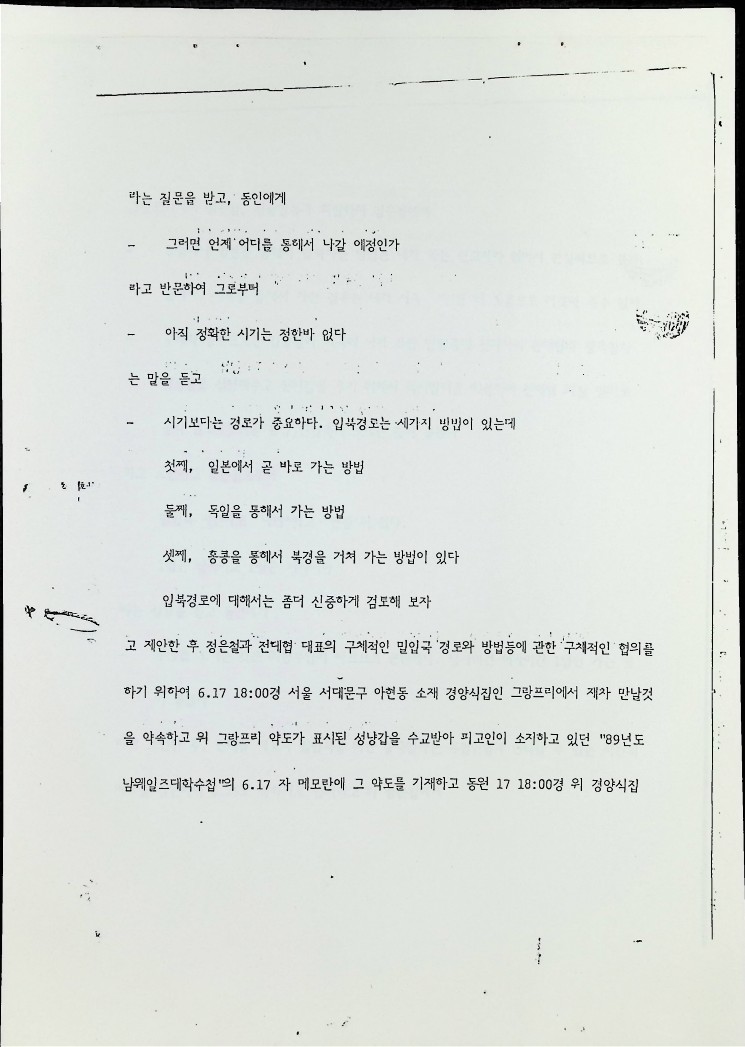 라는 질문을 받고, 동인에게
- 그러면 언제 어디를 통해서 나갈 예정인가
라고 반문하여 그로부터
- 아직 정확한 시기는 정한바 없다
는 말을 듣고
- 시기보다는 경로가 중요하다. 입북경로는 세가지 방법이 있는데
첫째, 일본에서 곧 바로 가는 방법
둘째, 독일을 통해서 가는 방법
셋째, 홍콩을 통해서 북경을 거쳐 가는 방법이 있다
입북경로에 대해서는 좀더 신중하게 검토해 보자
고 제안한 후 정은철과 전대협 대표의 구체적인 밀입국 경로와 방법등에 관한 구체적인 협의를
하기 위하여 6.17 18:00경 서울 서대문구 아현동 소재 경양식집인 그랑프리에서 재차 만날것
을 약속하고 위 그랑프리 약도가 표시된 성냥갑을 수교받아 피고인이 소지하고 있던 "89년도
남웨일즈대학수첩"의 6.17 자 메모란에 그 약도를 기재하고 동원 17 18:00경 위 경양식집